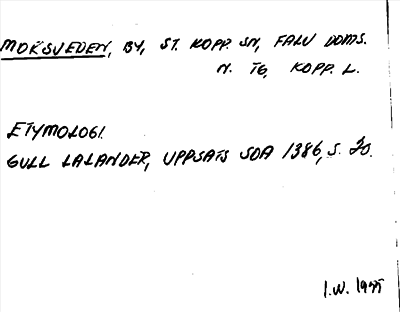 MOKSVEDEN, BY, ST. KOPP. SN, FALU DOMS.
N. TG, KOPP. L.
ETYMOLOGI.
GULL LALANDER, UPPSATS SOA 1386, S. 20.
I.W.